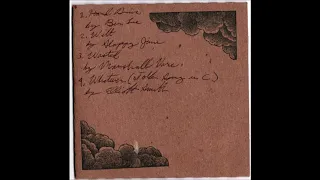 1. Hand Driven
by Ben Lee
2. Wilt
by Happy June
3. Wasted
by Marshall Vore
4. Whatever (Folk Song in C)
by Elliott Smith